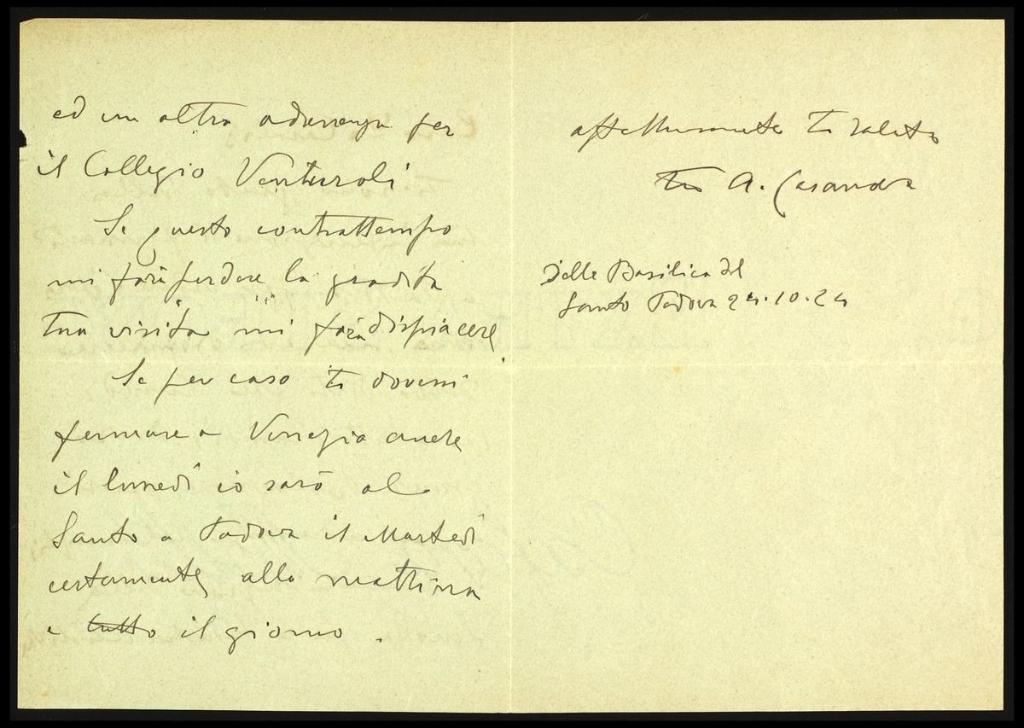 ed un altra adunanza per
il Collegio Venturoli
Se questo contrattempo
mi farà perdere la gradita
tua visita mi farà dispiacere.
Se per caso ti dovessi
fermare a Venezia anche
il lunedì io sarò al
Santo a Padova il Martedì
certamente alla mattina
e tutto il giorno.
affettuosamente Ti saluto
tuo A. Casanova
Dalla Basilica del
Santo Padova 24.10.24